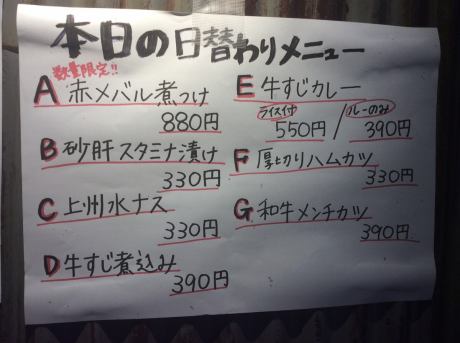 本日の日替わりメニュー
数量限定!!
A 赤メバル煮つけ
880円
B 砂肝スタミナ漬け
330円
C 上州水ナス
330円
D 牛すじ煮込み
390円
E 牛すじカレー
ライス付 ルーのみ
550円 / 390円
F 厚切りハムカツ
330円
G 和牛メンチカツ
390円